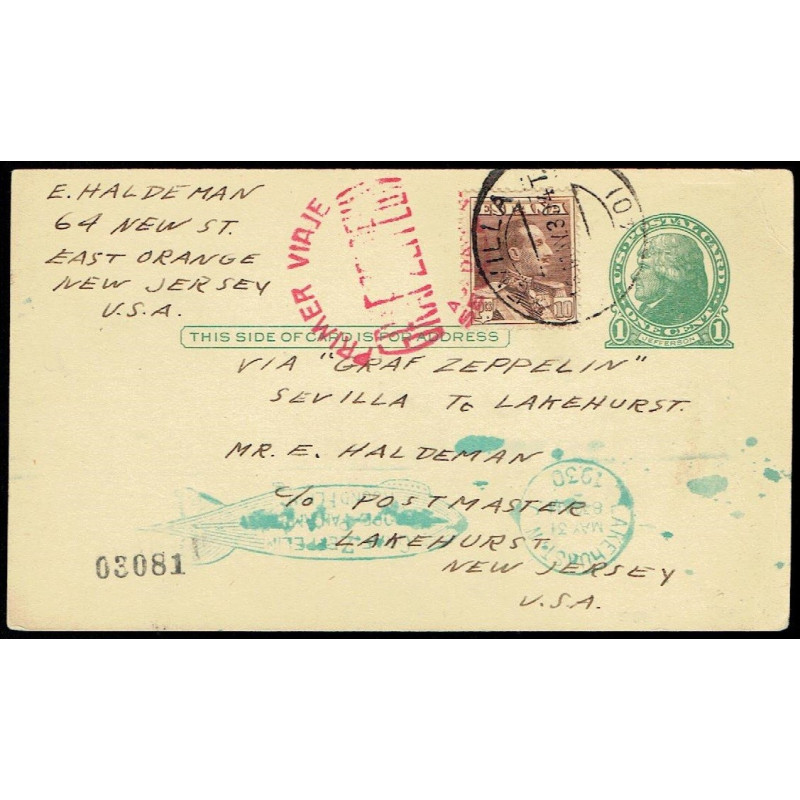 E. HALDEMAN
64 NEW ST.
EAST ORANGE
NEW JERSEY
U.S.A.
PRIMER VIAJE
SEVILLA
10
U.S. POSTAL CARD
1 ONE CENT 1
JEFFERSON
THIS SIDE OF CARD IS FOR ADDRESS
VIA "GRAF ZEPPELIN"
SEVILLA TO LAKEHURST.
MR. E. HALDEMAN
C/O POSTMASTER
LAKEHURST
NEW JERSEY
U.S.A.
ZEPPELIN
LAKEHURST
MAY 31
1930
03081